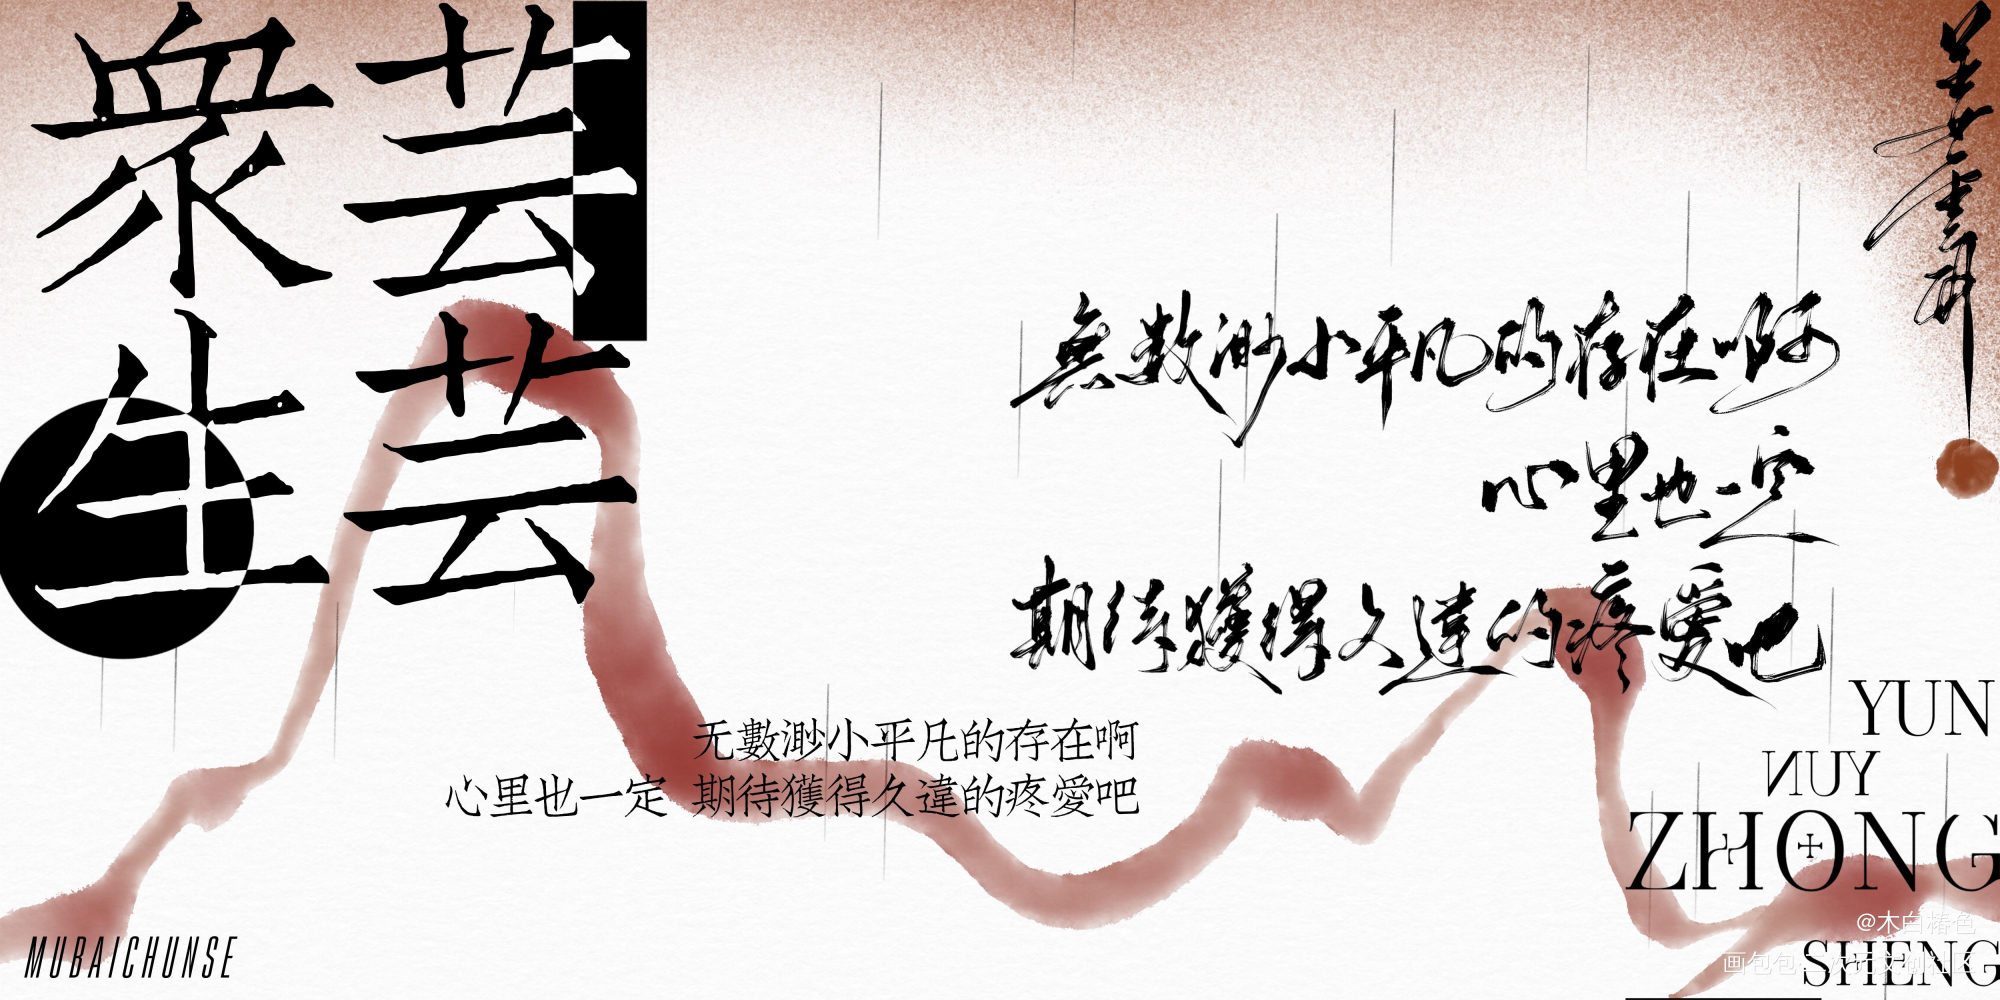 芸芸
衆生
無數渺小平凡的存在啊
心里也一定
期待獲得久違的疼愛吧
无數渺小平凡的存在啊
心里也一定 期待獲得久違的疼愛吧
YUN
YUN
ZHONG
SHENG
MUBAICHUNSE
@木白椿色